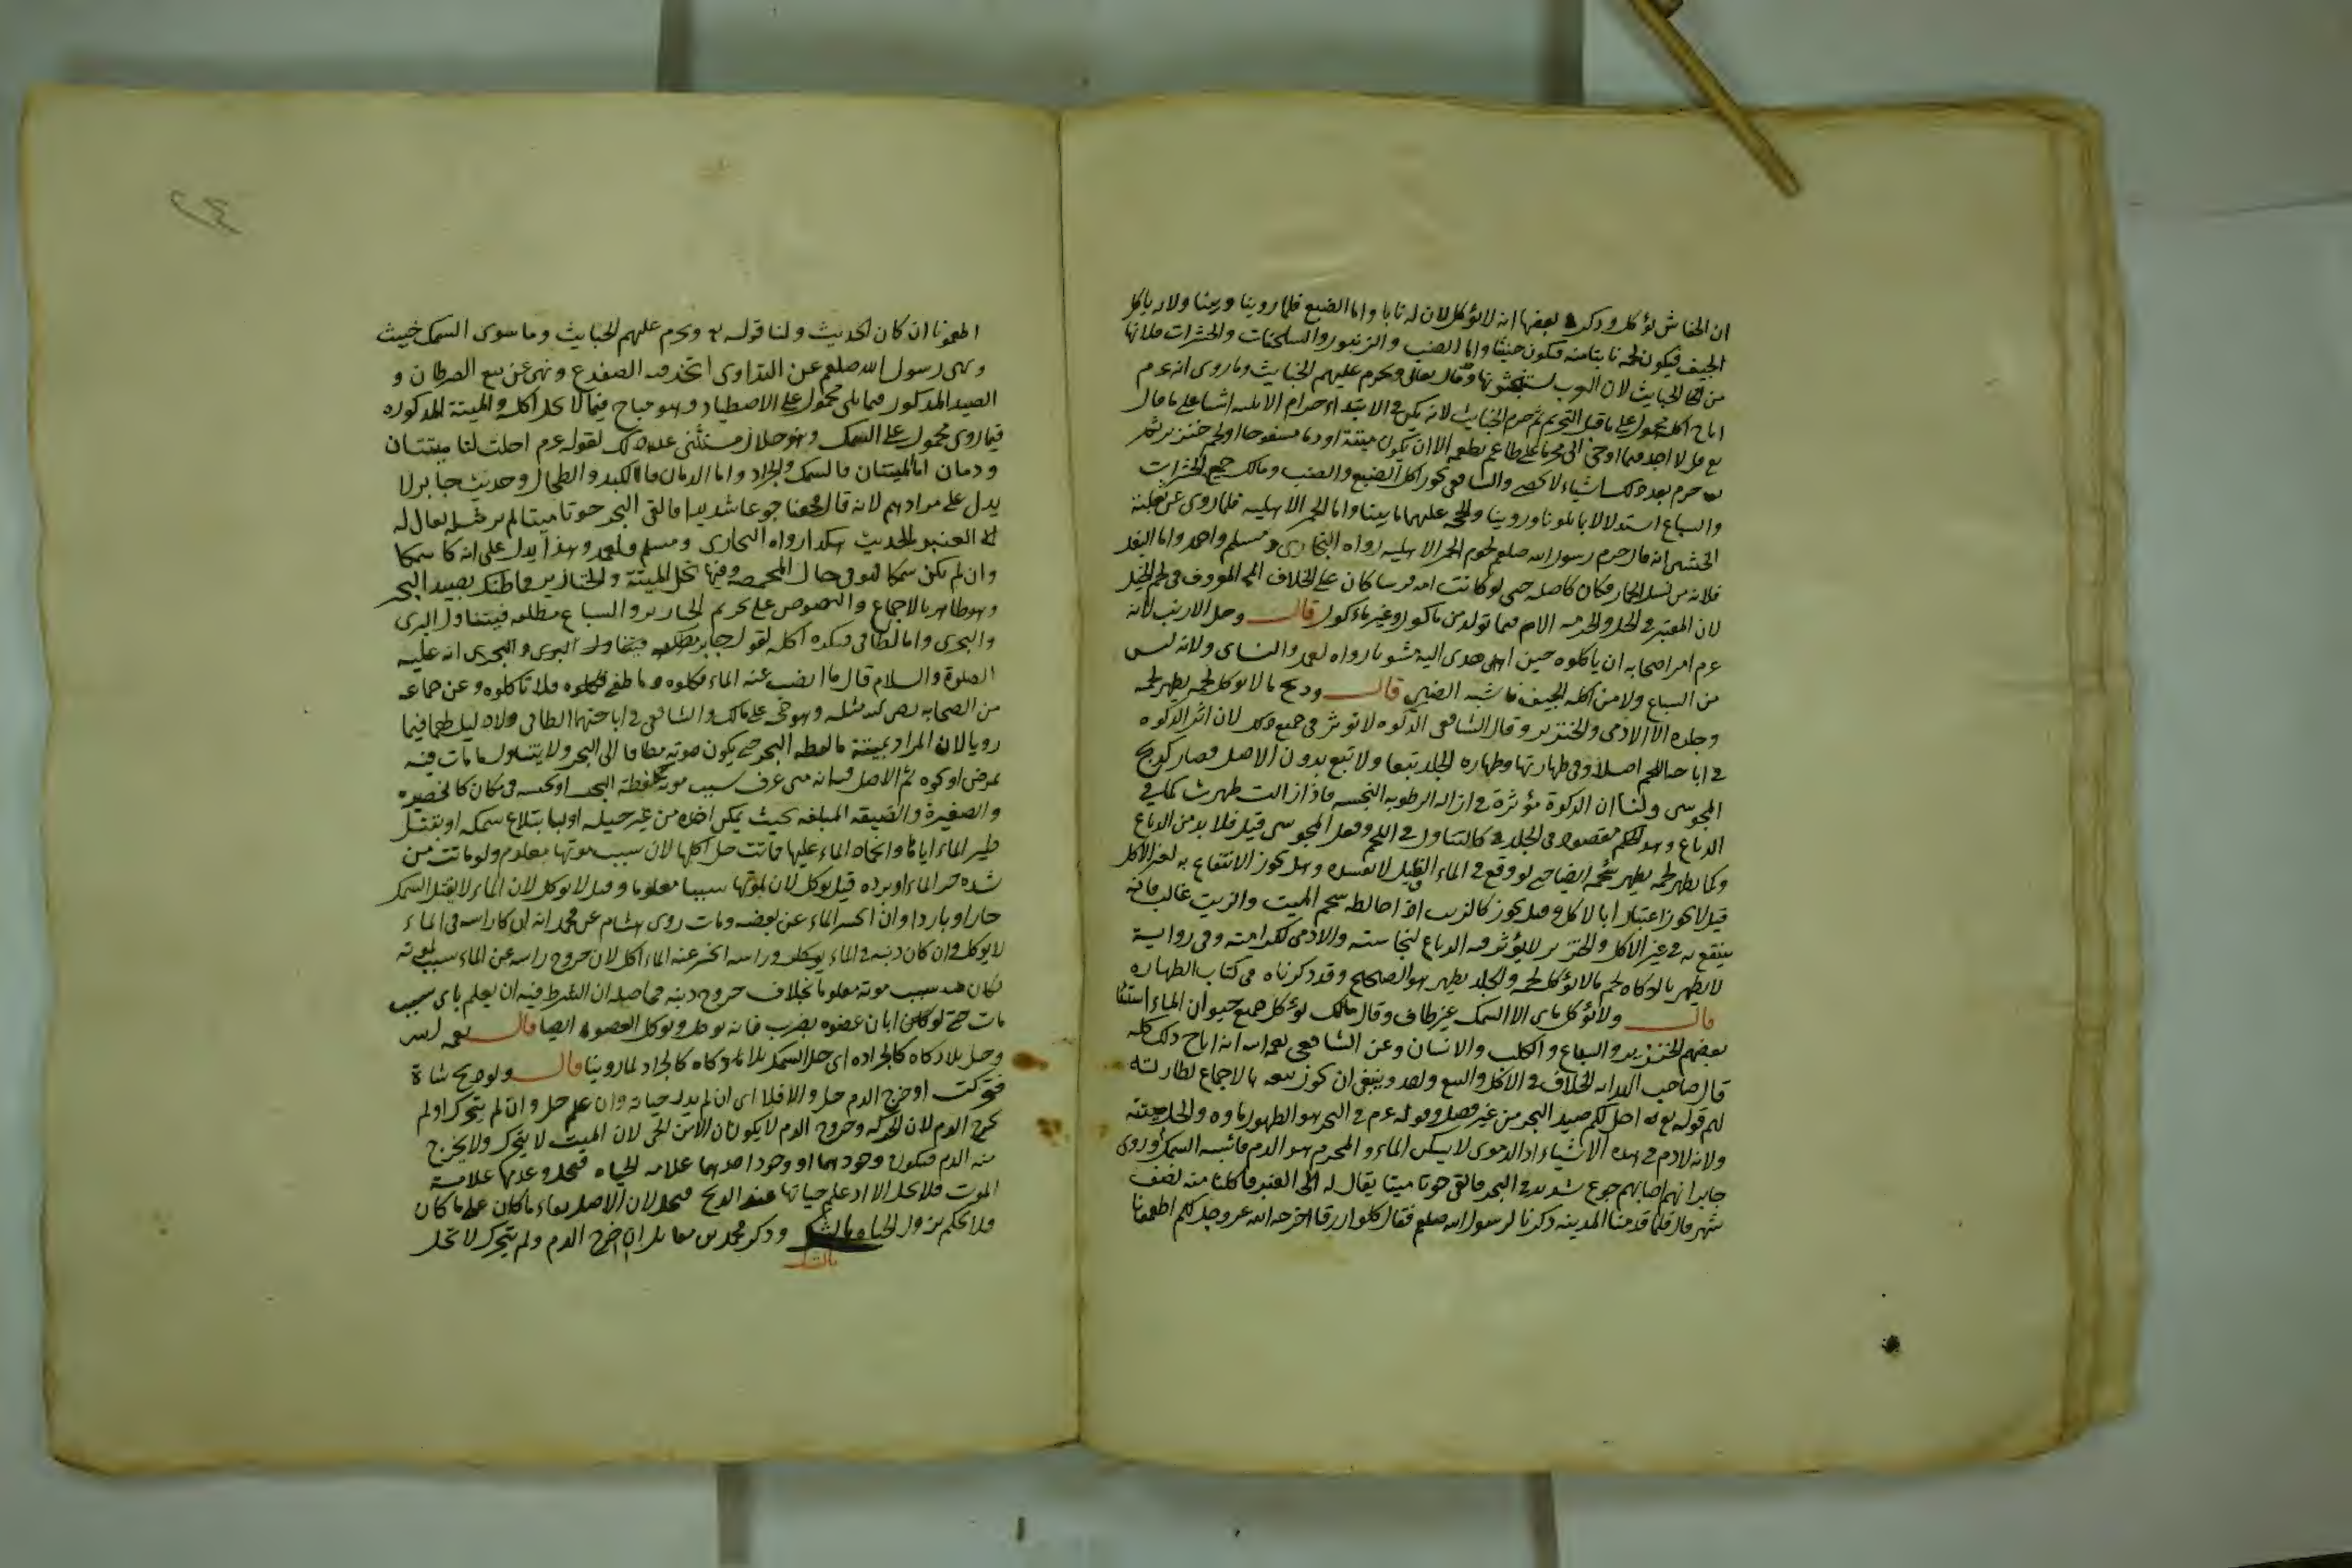 ان الخفاش يؤكل وذكر بعضها انه لا يؤكل لان له نابا واما الضبع فلما روينا وبينا ولانه ياكل
الجيف فيكون لحمه نابتا منه فيكون خبيثا واما الضب والزنبور والسلحفات والحشرات فلانها
من الخبايث لان العرب تستخبثونها وقال تعالى ويحرم عليهم الخبايث وما روى انه عم
اباح اكله محمول على ما قبل التحريم ثم حرم الخبايث لانه لم يكن في الابتداء حرام الا ثلثه اشيا على ما قال
تع قل لا اجد فيما اوحى الى محرما على طاعم يطعمه الا ان يكون ميتة او دما مسفوحا او لحم خنزير ثم
حرم بعد ذلك اشياء لا تحصى والشافعي يجوز اكل الضبع والضب ومالك جميع الحشرات
والسباع استدلالا بما تلونا وروينا والحجة عليهما ما بينا واما الحمر الاهليه فلما روى عن ثعلبة
الخشنى انه قال حرم رسول الله صلعم لحوم الحمر الاهليه رواه البخارى ومسلم واحمد واما البغل
فلانه من نسل الحمار فكان كاصله حتى لو كانت امه فرسا كان على الخلاف المعروف في لحم الخيل
لان المعتبر في الحل والحرمه الام فيما تولد من ماكول وغير ماكول قال وحل الارنب لانه
عم امر اصحابه ان ياكلوه حين اهدى اليه مشويا رواه احمد والنساى ولانه ليس
من السباع ولا من اكله الجيف فاشبه الضبى قال وذبح ما لا يوكل لحمه يطهر لحمه
وجلده الا الادمى والخنزير وقال الشافعي الذكوه لا توثر في جميع ذلك لان اثر الذكوه
في اباحة اللحم اصلا وفي طهارتها وطهاره الجلد تبعا ولا تبع بدون الاصل فصار كذبح
المجوسى ولنا ان الذكوة مؤثرة في ازاله الرطوبه النجسه فاذا زالت طهرت كما في
الدباغ وهو حكم مقصود في الجلد كالتناول في اللحم وفعل المجوسى قيل فلا بد من الدباغ
وكما يطهر لحمه يطهر شحمه ايضا حتى لو وقع في الماء القليل لا يفسده وهل يجوز الانتفاع به لغير الاكل
قيل لا يجوز اعتبارا بالاكل وقيل يجوز كالزيت اذا خالطه شحم الميت والزيت غالب فانه
ينتفع به في غير الاكل والخنزير لا يؤثر فيه الدباغ لنجاسته والادمى لكرامته وفي رواية
لا يطهر بالذكاه لحم ما لا يؤكل لحمه والجلد يطهر هو الصحيح وقد ذكرناه في كتاب الطهاره
قال ولا يؤكل مائي الا السمك غير طاف وقال مالك يؤكل جميع حيوان الماء استثنا
بعضهم الخنزير والسباع والكلب والانسان وعن الشافعي رحمه الله انه اباح ذلك كله
قال صاحب الهدايه الخلاف في الاكل والبيع واحد وينبغي ان يجوز بيعه بالاجماع لطهارته
لهم قوله تع احل لكم صيد البحر من غير فصل وقوله عم في البحر هو الطهور ماؤه والحل ميتته
ولانه لا دم في هذه الاشياء اذ الدموى لا يسكن الماء والمحرم هو الدم فاشبه السمك وروى
جابر انهم اصابهم جوع شديد فالقى البحر حوتا ميتا يقال له العنبر فاكلنا منه نصف
شهر قال فلما قدمنا المدينه ذكرنا لرسول الله صلعم فقال كلوا رزقا اخرجه الله عز وجل لكم اطعمونا
اطعمونا ان كان الحديث ولنا قوله تع ويحرم عليهم الخبايث وما سوى السمك خبيث
ونهى رسول الله صلعم عن التداوى اتخذ فيه الضفدع ونهى عن بيع السرطان و
الصيد المذكور فيما تلى محمول على الاصطياد وهو مباح فيما لا يحل اكله والميتة المذكوره
فيما روى محمول على السمك وهو حلال مستثنى عن ذلك لقوله عم احلت لنا ميتتان
ودمان اما الميتتان فالسمك والجراد واما الدمان فالكبد والطحال وحديث جابر لا
يدل على مرادهم لانه قال فجعنا جوعا شديدا فالقى البحر حوتا ميتا لم ير مثله يقال له
العنبر الحديث هكذا رواه البخارى ومسلم واحمد وهذا يدل على انه كان سمكا
وان لم يكن سمكا فهو في حال المخمصة وفيها تحل الميتة والخنازير فما ظنك بصيد البحر
وهو طاهر بالاجماع والنصوص على تحريم الخنازير والسباع مطلقه فيتناول البرى
والبحرى واما الطافى فيكره اكله لقول جابر انه عليه
الصلوة والسلام قال ما نضب عنه الماء فكلوه وما طفى فلا تاكلوه وعن جماعه
من الصحابه رضى الله مثله وهو حجة على مالك والشافعي في اباحتهما الطافى ولا دليل لهما فيما
رويا لان المراد بميتة ما لفظه البحر حتى يكون موته مضافا الى البحر ولا يتناول ما مات فيه
بمرض او نحوه ثم الاصل فيه انه متى عرف سبب موته كلفظة البحر او بحبسه في مكان كالحضيره
والصغيرة والضيقه المبلغه بحيث يمكن اخذه من غير حيله او بابتلاع سمكه او بقتل
طير الماء اياها وانجماد الماء عليها فماتت حل اكلها لان سبب موتها معلوم ولو ماتت من
شده حر الماء او برده قيل يوكل لان لموتها سببا معلوما وقيل لا يوكل لان الماء لا يقتل السمك
حارا او باردا وان انحسر الماء عن بعضه ومات روى هشام عن محمد انه ان كان راسه في الماء
لا يوكل وان كان ذنبه في الماء وراسه انحسر عنه الماء اكل لان خروج راسه عن الماء سبب لموته
فكان سبب موته معلوما بخلاف خروج ذنبه فحاصله ان الشرط فيه ان يعلم باى سبب
مات حتى لو ابان عضوه بضرب فانه يوكل ويوكل العضو ايضا قال
وحل بلا ذكاه كالجراده اى حل السمك بلا ذكاه كالجراد لما روينا قال ولو ذبح شاة
فتحركت او خرج الدم حل والا فلا اى ان لم يدر حياته وان علم حل وان لم يتحرك او لم
يخرج الدم لان الحركه وخروج الدم لا يكونان الا من الحى لان الميت لا يتحرك ولا يخرج
منه الدم فيكون وجودهما او وجود احدهما علامه الحياه فيحل وعدمها علامة
الموت فلا يحل الا اذا علم حياتها عند الذبح فيحل لان الاصل بقاء ما كان على ما كان
فلا يحكم بزوال الحياه بالشك وذكر محمد بن مقاتل ان خرج الدم ولم يتحرك لا تحل
بالشك